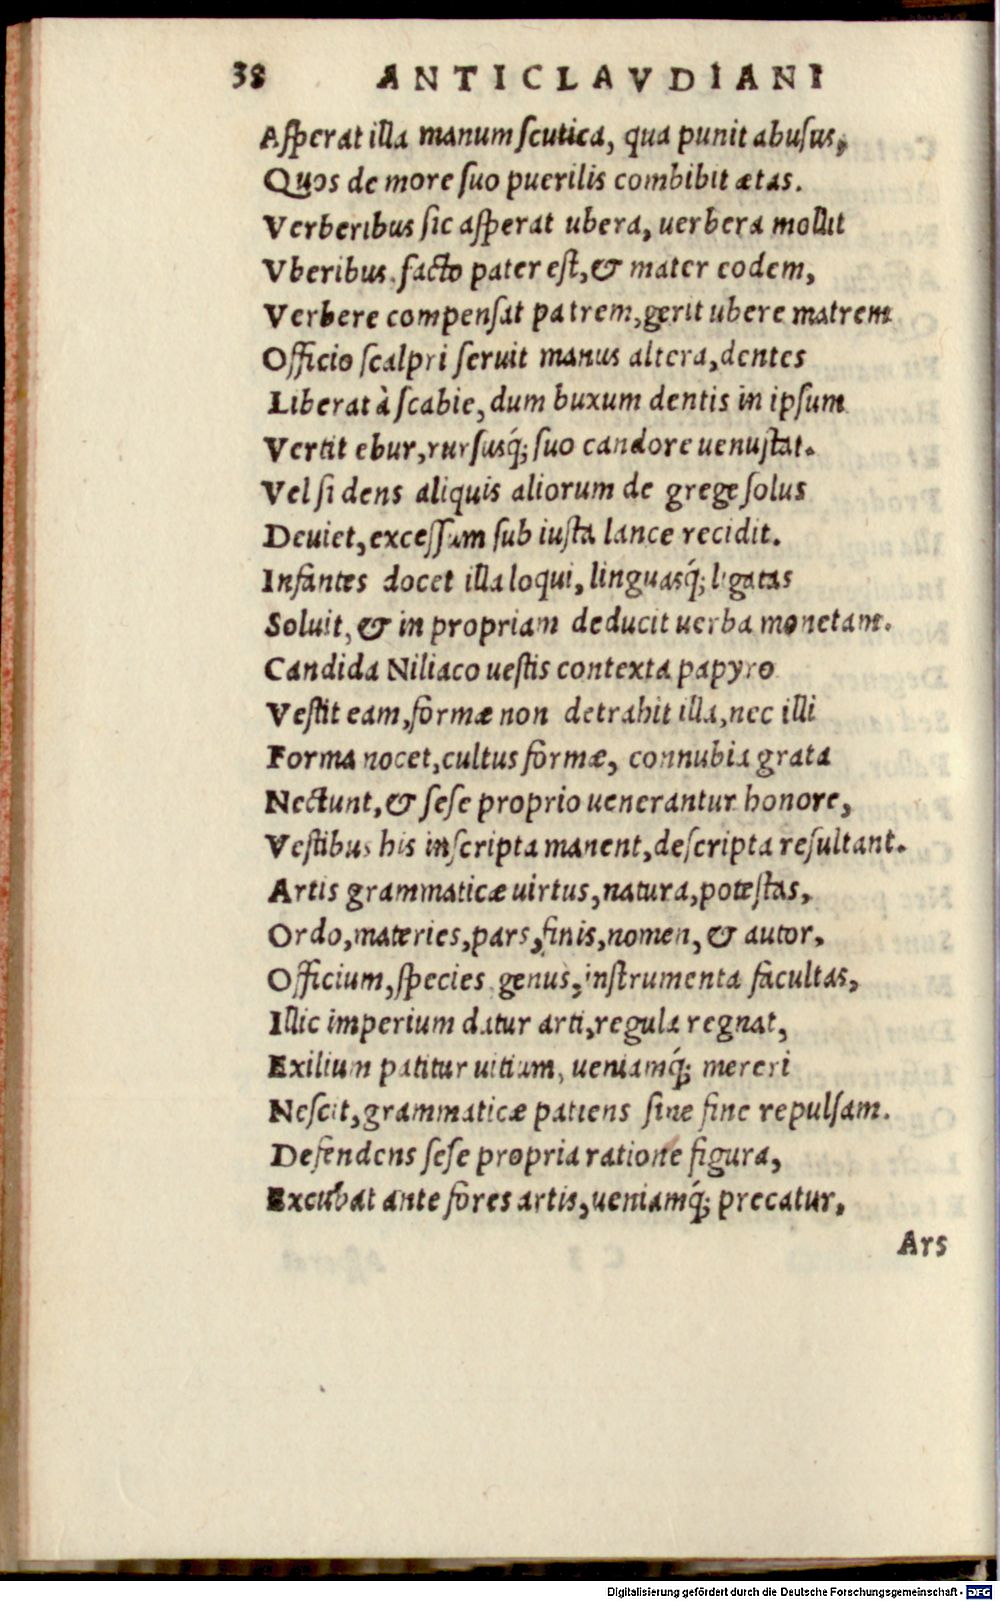 38 ANTICLAVDIANI
Asperat illa manum scutica, qua punit abusus,
Quos de more suo puerilis combibit ætas.
Verberibus sic asperat ubera, uerbera mollit
Vberibus. facto pater est, & mater eodem,
Verbere compensat patrem, gerit ubere matrem
Officio scalpri seruit manus altera, dentes
Liberat à scabie, dum buxum dentis in ipsum
Vertit ebur, rursusq́; suo candore uenustat.
Vel si dens aliquis aliorum de grege solus
Deuiet, excessum sub iusta lance recidit.
Infantes docet illa loqui, linguasq́; ligatas
Soluit, & in propriam deducit uerba monetam.
Candida Niliaco uestis contexta papyro
Vestit eam, formæ non detrahit illa, nec illi
Forma nocet, cultus formæ, connubia grata
Nectunt, & sese proprio uenerantur honore,
Vestibus his inscripta manent, descripta resultant.
Artis grammaticæ uirtus, natura, potestas,
Ordo, materies, pars, finis, nomen, & autor,
Officium, species genus, instrumenta facultas,
Illic imperium datur arti, regula regnat,
Exilium patitur uitium, ueniamq́; mereri
Nescit, grammaticæ patiens sine fine repulsam.
Defendens sese propria ratione figura,
Excubat ante fores artis, ueniamq́; precatur,
Ars
Digitalisierung gefördert durch die Deutsche Forschungsgemeinschaft - DFG